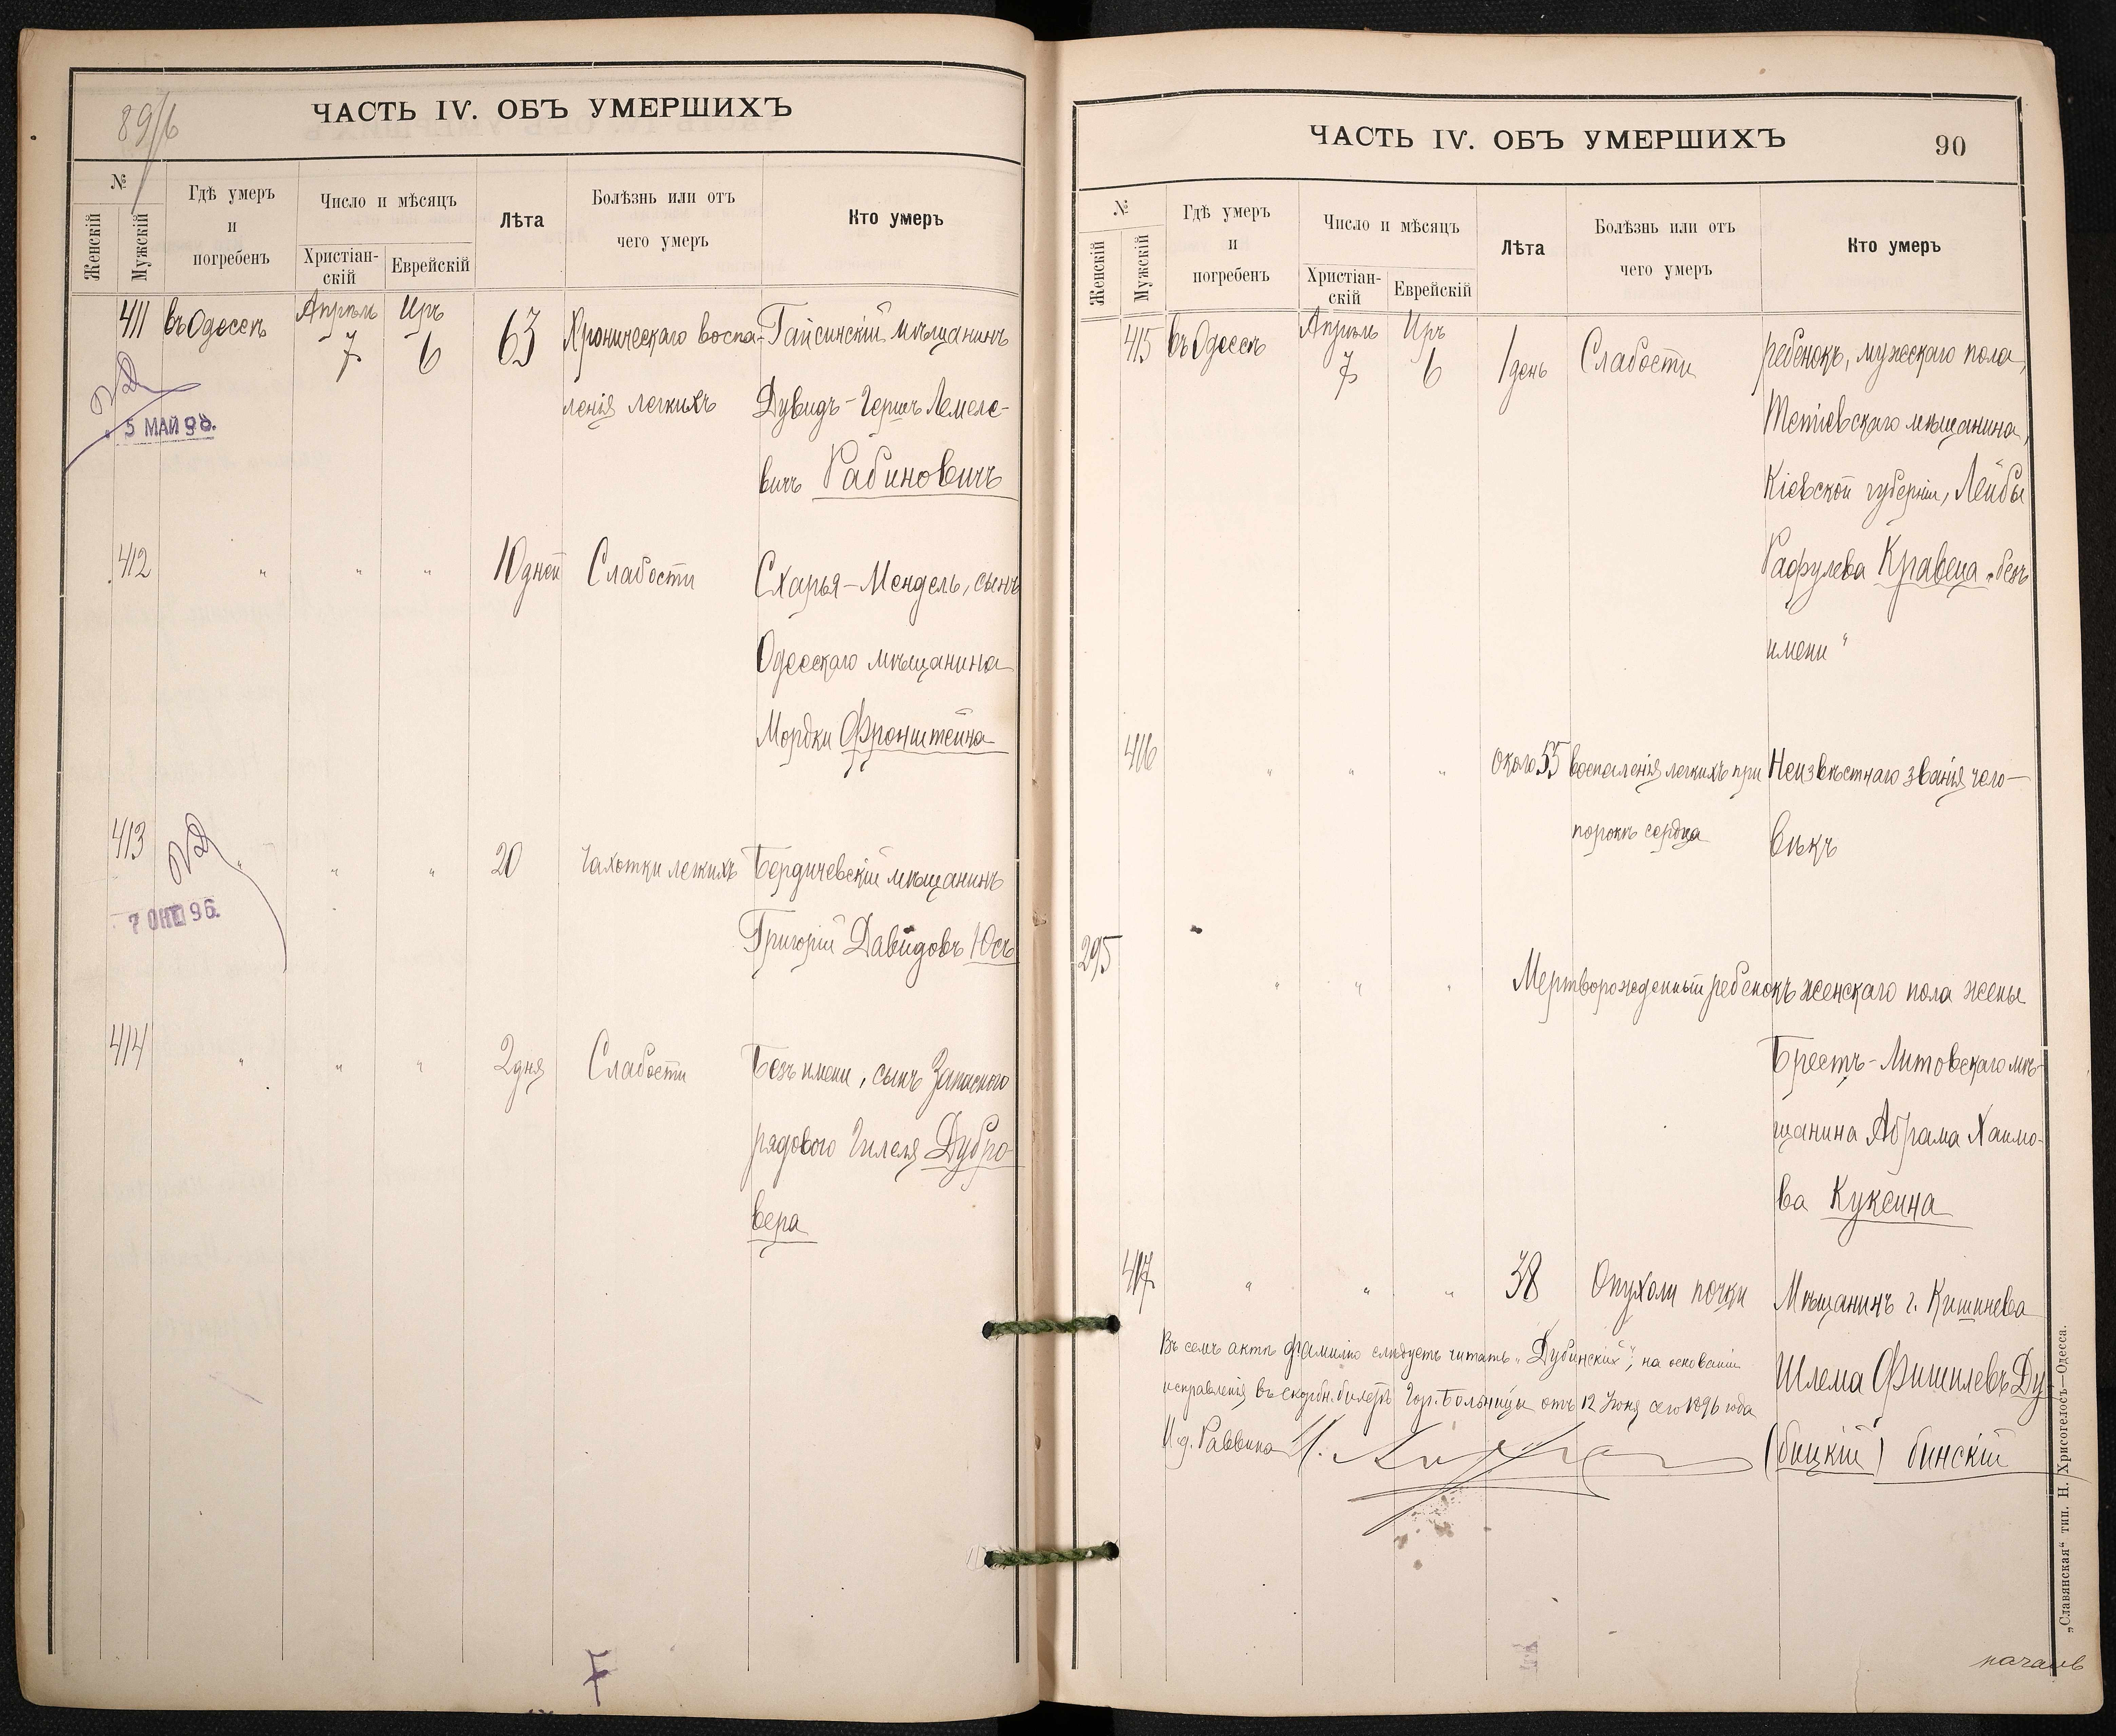 89/6
ЧАСТЬ IV. ОБЪ УМЕРШИХЪ
№
Женскій
Мужскій
Гдѣ умеръ
и
погребенъ
Число и мѣсяцъ
Христіан-
скій
Еврейскій
Лѣта
Болѣзнь или отъ
чего умеръ
Кто умеръ
411 въ Одессѣ Апрѣль 7 Иръ 6 63 Хроническаго воспа- Гайсинскій мѣщанинъ
ленія легкихъ Дувидъ-Гершъ Лемеле-
вичъ Рабиновичъ
5 МАЙ 98.
412 " " " 10 дней Слабости Схарья-Мендель, сынъ
Одесскаго мѣщанина
Мордки Фронштейна
413 " " " 20 Чахотки легкихъ Бердичевскій мѣщанинъ
Григорій Давидовъ Юсъ
7 ОКТ 96.
414 " " " 2 дня Слабости Безъ имени, сынъ Запаснаго
рядового Гилеля Дубро-
вера
ЧАСТЬ IV. ОБЪ УМЕРШИХЪ
90
№
Женскій
Мужскій
Гдѣ умеръ
и
погребенъ
Число и мѣсяцъ
Христіан-
скій
Еврейскій
Лѣта
Болѣзнь или отъ
чего умеръ
Кто умеръ
415 въ Одессѣ Апрѣль 7 Иръ 6 1 день Слабости ребенокъ, мужескаго пола,
Тетіевскаго мѣщанина,
Кіевской губерніи, Лейбы
Рафулева Кравеца „безъ
имени"
416 " " " около 55 воспаленія легкихъ при Неизвѣстнаго званія чело-
порокѣ сердца вѣкъ
295 " " " Мертворожденный ребенокъ женскаго пола жены
Брестъ-Литовскаго мѣ-
щанина Абрама Хаимо-
ва Куксина
417 " " " 38 Опухоли почки Мѣщанинъ г. Кишинева
Шлема Фишилевъ Ду-
(бицкій) бинскій
Въ семъ актѣ фамилію слѣдуетъ читать „Дубинскій", на основаніи
исправленія въ скорбн. билетѣ Гор. Больницы отъ 12 Іюня сего 1896 года
И. д. Раввина
„Славянская" тип. Н. Хрисогелосъ—Одесса.